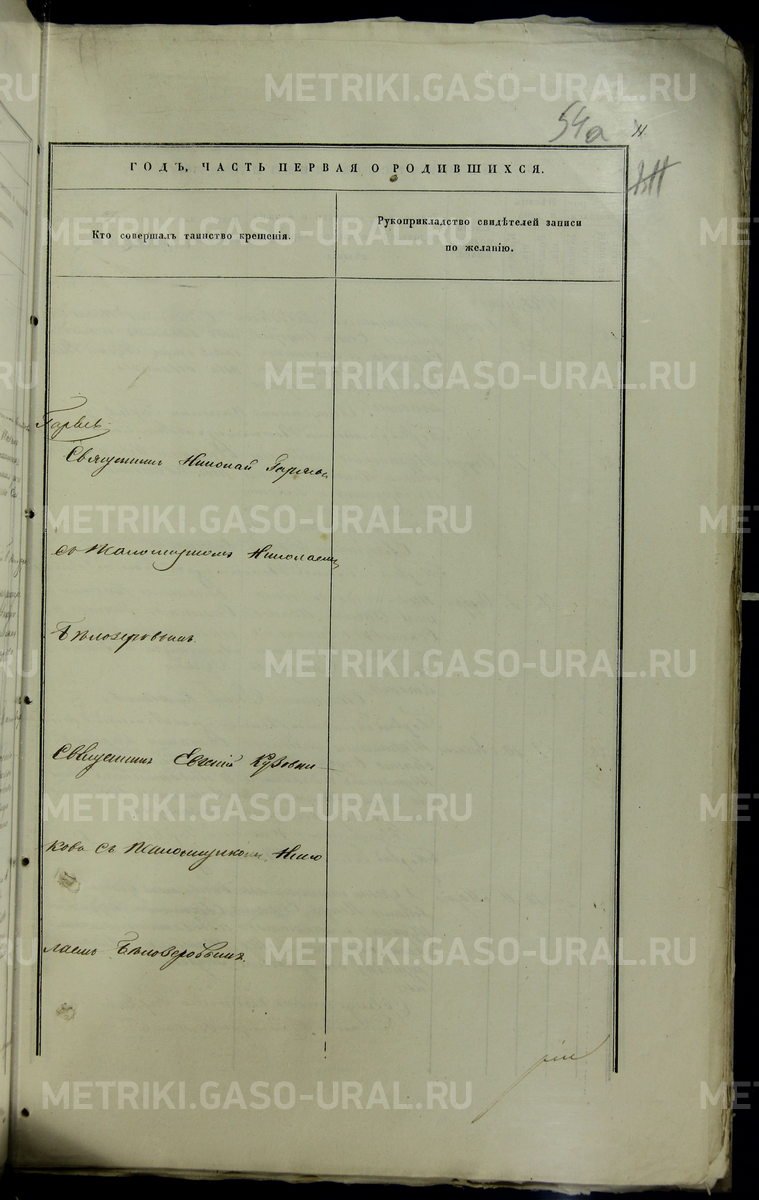 METRIKI.GASO-URAL.RU
54а
ГОДЪ, ЧАСТЬ ПЕРВАЯ О РОДИВШИХСЯ.
Кто совершалъ таинство крещенія.
Рукоприкладство свидѣтелей записи
по желанію.
Священникъ Николай
съ Псаломщикомъ Николаемъ
Бѣлозеровымъ
Священникъ Евгеній Кузовни
ковъ съ Псаломщикомъ Нико
лаемъ Бѣлозеровымъ.